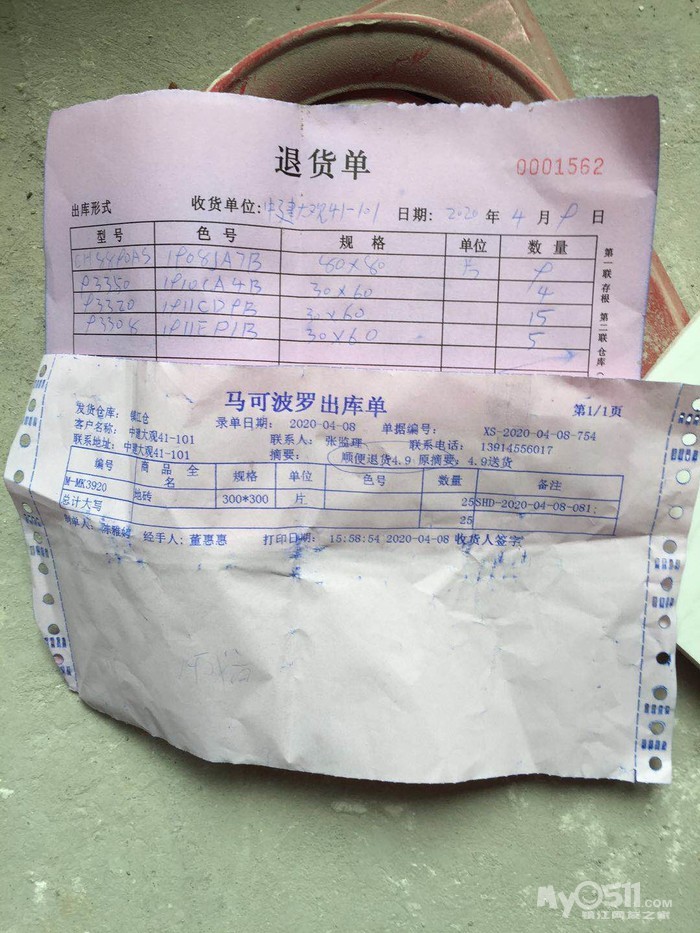 退货单
0001562
出库形式 收货单位: 中建大观41-101 日期: 2020 年 4 月 9 日
型号 色号 规格 单位 数量
CH8890AS 1P081A7B 80×80 片 9
P3350 1P101A4B 30×60 4
P3320 1P11CDPB 30×60 15
P3308 1P11EP1B 30×60 5
第一联存根 第二联仓库
马可波罗出库单
第1/1页
发货仓库: 镇江仓 录单日期: 2020-04-08 单据编号: XS-2020-04-08-754
客户名称: 中建大观41-101 联系人: 张监理 联系电话: 13914556017
联系地址: 中建大观41-101 摘要: 顺便退货4.9 原摘要: 4.9送货
编号 商品全名 规格 单位 色号 数量 备注
M-MK3920 地砖 300*300 片 25 SHD-2020-04-08-081;
总计大写 25
制单人: 陈雅婷 经手人: 董惠惠 打印日期: 15:58:54 2020-04-08 收货人签字
My0511.com
镇江网友之家